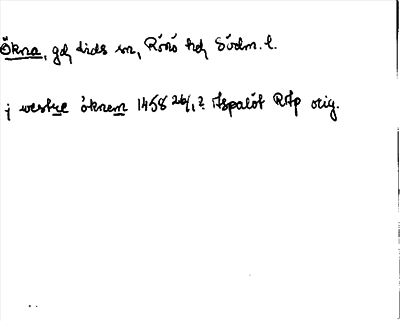 Ökna, gd, Lids sn, Rönö hd, Södm. l.
j westre öknem 1458 26/1 ? Aspalöt RAp orig.